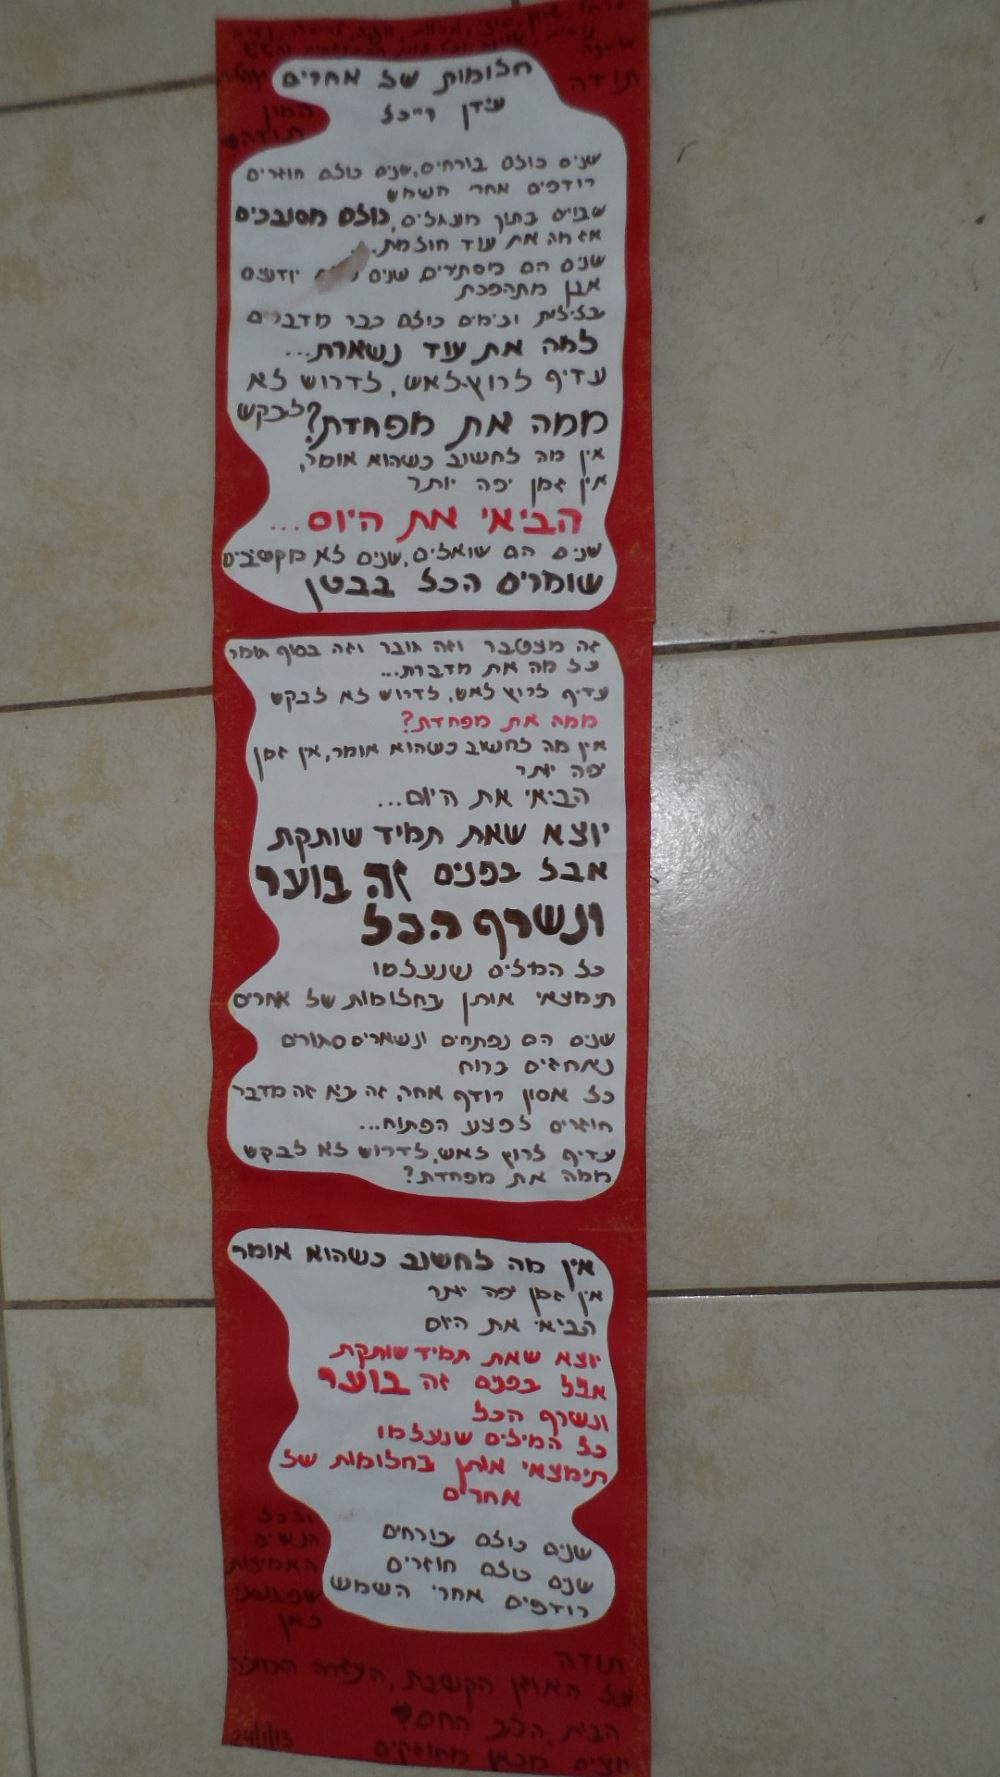 תודה
המון
תודה
חלומות של אחרים
עידן רייכל
שנים כולם בורחים, שנים כולם חוזרים
רודפים אחרי השמש
שבויים בתוך מעגלים, כולם מסתבכים
אז מה את עוד חולמת...
שנים הם מסתירים, שנים יודעים
אבן מתהפכת
בלילות ובימים כולם כבר מדברים
למה את עוד נשארת...
עדיף לרוץ לאש, לדרוש לא
לבקש
ממה את מפחדת?
אין מה לחשוב כשהוא אומר,
אין זמן יפה יותר
הביאי את היום...
שנים הם שואלים, שנים לא מקשיבים
שומרים הכל בבטן
זה מצטבר וזה עובר וזה בסוף נשמר
על מה את מדברת...
עדיף לרוץ לאש, לדרוש לא לבקש
ממה את מפחדת?
אין מה לחשוב כשהוא אומר, אין זמן
יפה יותר
הביאי את היום...
יוצא שאת תמיד שותקת
אבל בפנים זה בוער
ונשרף הכל
כל המילים שנעלמו
תימצאי אותן בחלומות של אחרים
שנים הם נפתחים ונשארים סתורים
נאחזים ברוח
כל אסון רודף אחר, זה בא זה מדבר
חוזרים לפצע הפתוח...
עדיף לרוץ לאש, לדרוש לא לבקש
ממה את מפחדת?
אין מה לחשוב כשהוא אומר
אין זמן יפה יותר
הביאי את היום
יוצא שאת תמיד שותקת
אבל בפנים זה בוער
ונשרף הכל
כל המילים שנעלמו
תימצאי אותן בחלומות של
אחרים
שנים כולם בורחים
שנים כולם חוזרים
רודפים אחרי השמש
ולכל
הנשים
האמיצות
שפגשתי
כאן
תודה
על האוזן הקשבת, העזרה
הבית, הלב החם
יוצאים מכאן מחוזקים
24/1/13